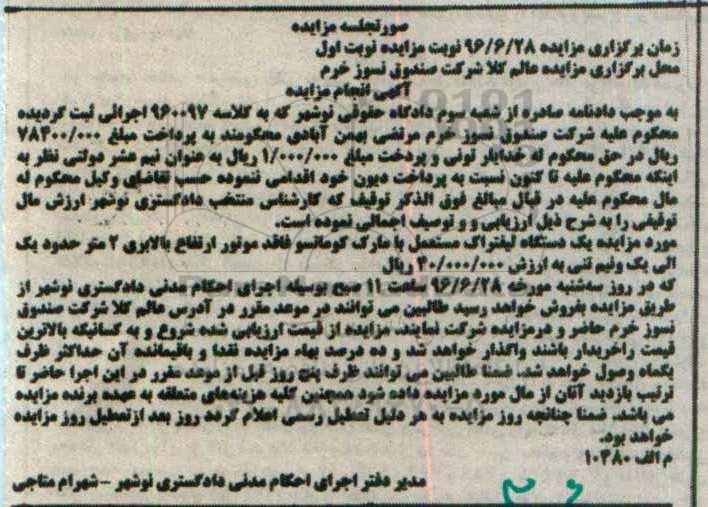 صورتجلسه مزایده
زمان برگزاری مزایده ۹۶/۶/۲۸ نوبت مزایده نوبت اول
محل برگزاری مزایده عالم کلا شرکت صندوق نسوز خرم
آگهی انجام مزایده
به موجب دادنامه صادره از شعبه سوم دادگاه حقوقی نوشهر که به کلاسه ۹۶۰۰۹۷ اجرائی ثبت گردیده
محکوم علیه شرکت صندوق نسوز خرم مرتضی بهمن آبادی محکومند به پرداخت مبلغ ۷۸۴۰۰/۰۰۰
ریال در حق محکوم له خدایار تونی و پرداخت مبلغ ۱/۰۰۰/۰۰۰ ریال به عنوان نیم عشر دولتی نظر به
اینکه محکوم علیه تا کنون نسبت به پرداخت دیون خود اقدامی ننموده حسب تقاضای وکیل محکوم له
مال محکوم علیه در قبال مبالغ فوق الذکر توقیف که کارشناس منتخب دادگستری نوشهر ارزش مال
توقیفی را به شرح ذیل ارزیابی و و توصیف اجمالی نموده است.
مورد مزایده یک دستگاه لیفتراک مستعمل با مارک کوماتسو فاقد موتور ارتفاع بالابری ۲ متر حدود یک
الی یک ونیم تنی به ارزش ۴۰/۰۰۰/۰۰۰ ریال
که در روز سه‌شنبه مورخه ۹۶/۶/۲۸ ساعت ۱۱ صبح بوسیله اجرای احکام مدنی دادگستری نوشهر از
طریق مزایده بفروش خواهد رسید طالبین می توانند در موعد مقرر در آدرس عالم کلا شرکت صندوق
نسوز خرم حاضر و درمزایده شرکت نمایند. مزایده از قیمت ارزیابی شده شروع و به کسانیکه بالاترین
قیمت راخریدار باشند واگذار خواهد شد و ده درصد بهاء مزایده نقدا و باقیمانده آن حداکثر ظرف
یکماه وصول خواهد شد. ضمنا طالبین می توانند ظرف پنج روز قبل از موعد مقرر در این اجرا حاضر تا
ترتیب بازدید آنان از مال مورد مزایده داده شود همچنین کلیه هزینه‌های متعلقه به عهده برنده مزایده
می باشد. ضمنا چنانچه روز مزایده به هر دلیل تعطیل رسمی اعلام گردد روز بعد ازتعطیل روز مزایده
خواهد بود.
م الف ۱۰۴۸۰
مدیر دفتر اجرای احکام مدنی دادگستری نوشهر -شهرام متاجی